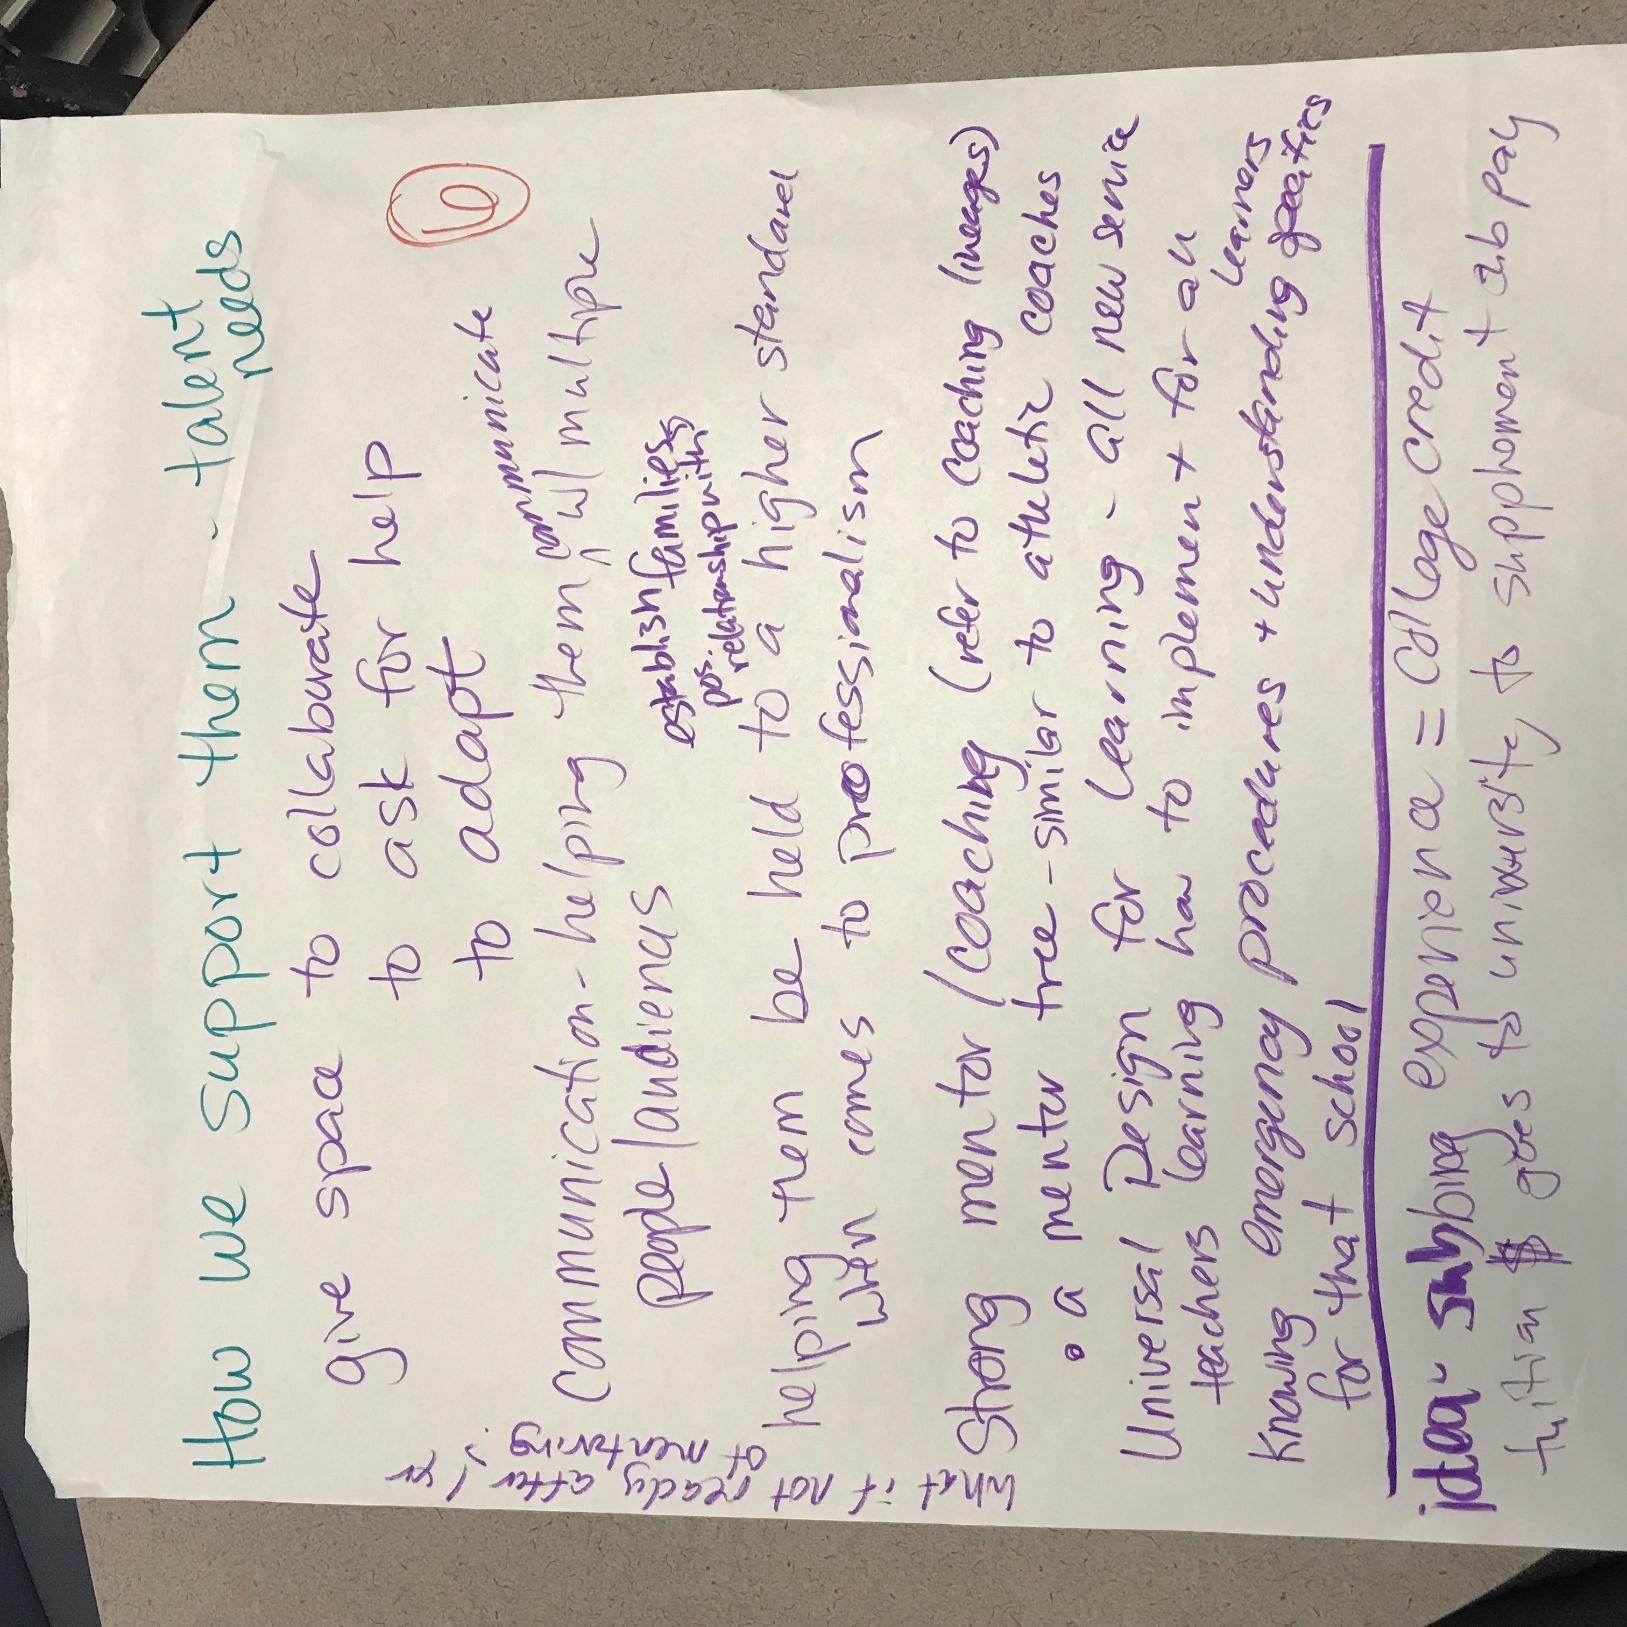 How we support them - talent
needs
6
give space to collaborate
to ask for help
to adapt
Communication - helping them ^ communicate w/ multiple
people/audiences
establish families
pos. relationship with
helping them be held to a higher standard
when comes to professionalism
Strong mentor/coaching (refer to coaching lineages)
• a mentor tree - similar to athletic coaches
Universal Design for Learning - all new service
teachers learning how to implement for all
learners
Knowing emergency procedures + understanding specifics
for that school
idea - subbing experience = college credit
tuition $ goes to university, to supplement sub pay
What if not ready after 1 yr
of mentoring?